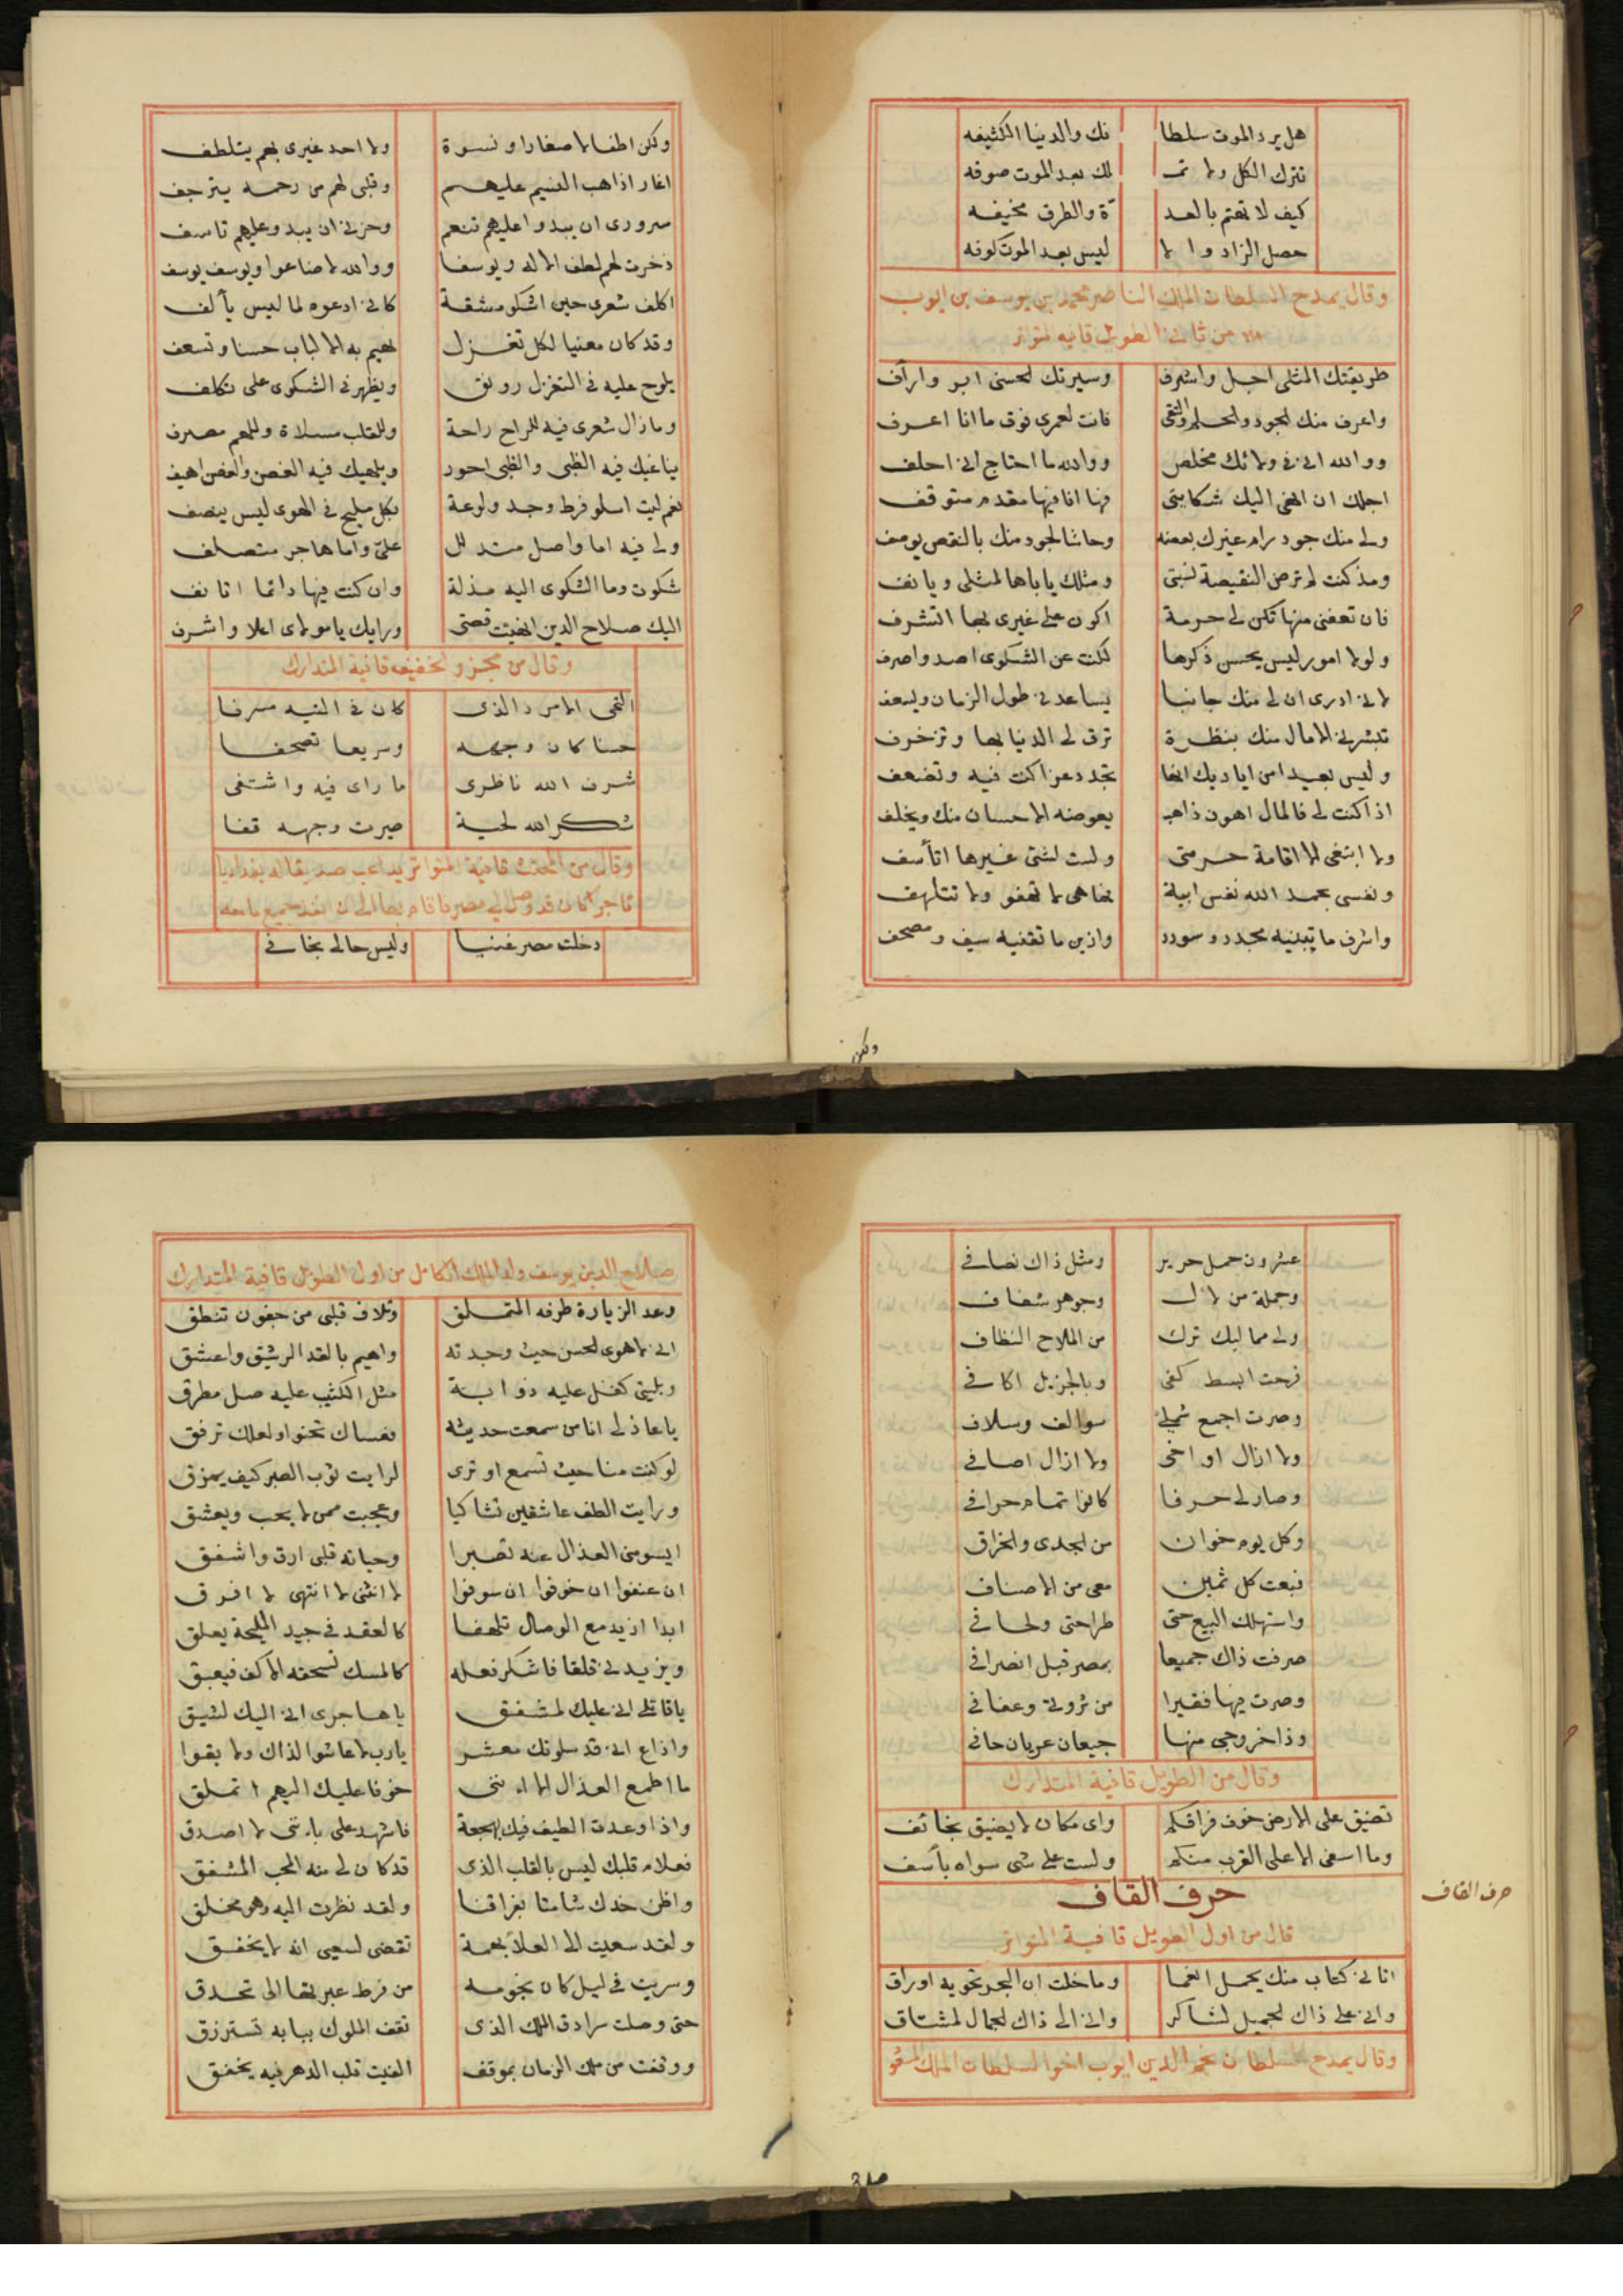 هل يرد الموت سلطا نك والدنيا الكثيفه
تترك الكل ولا تمـ لك بعد الموت صوفه
كيف لا تهتم بالعد ة والطرق مخيفه
حصل الزاد والا ليس بعد الموت كوفه
وقال يمدح السلطان الملك الناصر محمد بن يوسف بن ايوب
من ثاني الطويل قافيه المتواتر
طريقتك المثلى اجل واشرف وسيرتك الحسنى ابر وارأف
واعرف منك الجود والحلم والتقى فانت لعمرى فوق ما انا اعرف
ووالله انى فى ولائك مخلص ووالله ما احتاج انى احلف
اجلك ان انهى اليك شكايتى فها انا فيها مقدم متوقف
ولى منك جود رام غيرك بعضه وحاشا لجود منك بالنقص يوصف
ومذ كنت لم ترض النقيصة لشيمتى ومثلك ياباها لمثلى ويانف
فان تعفنى منها تكن لى حرمة اكون على غيرى بها اتشرف
ولولا امور ليس يحسن ذكرها لكنت عن الشكوى اصد واصرف
لانى ادرى ان لى منك جانبا يساعدنى طول الزمان ويسعف
تبشرنى الامال منك بنظرة ترق لى الدنيا بها وتزخرف
وليس بعيدا من اياديك انها تجدد عزا كنت فيه وتضعف
اذا كنت لى فالمال اهون ذاهب يعوضه الاحسان منك ويخلف
ولا ابتغى الا اقامة حرمتى ولست لشئ غيرها اتأسف
ونفسى بحمد الله نفس ابية فها هى لا تهفو ولا تتلهف
واشرف ما تبنيه مجد وسودد وازين ما تقنيه سيف ومصحف
ولكن
ولكن اطفالا صغارا ونسوة ولا احد غيرى بهم يتلطف
اغار اذا هب النسيم عليهم وقلبى لهم من رحمة يترجف
سرورى ان يبدوا عليهم تنعم وحزنى ان يبدو عليهم تاسف
ذخرت لهم لطف الاله ويوسفا ووالله لا ضاعوا ويوسف يوسف
اكلف شعرى حين اشكو مشقة كانى ادعوه لما ليس يألف
وقد كان معنيا لكل تغزل تهيم به الالباب حسنا وتسعف
يلوح عليه فى التغزل رونق ويظهر فى الشكوى على تكلف
وما زال شعرى فيه للراح راحة وللقلب مسلاة وللهم مصرف
يناغيك فيه الظبى والظبى احور ويلهيك فيه الغصن والغصن اهيف
نعم ليت اسلو فرط وجد ولوعة بكل مليح فى الهوى ليس ينصف
ولى فيه اما واصل متدلل علىّ واما هاجر متصلف
شكوت وما الشكوى اليه مذلة وان كنت فيها دائما اتانف
اليك صلاح الدين انهيت قصتى ورايك يا مولاى اعلا واشرف
وقال من مجزو الخفيف قافية المتدارك
التحى الامرد الذى كان فى التيه مسرفا
حسنا كان وجهه وسريعا تصحفا
شرف الله ناظرى ما راى فيه واشتفى
شكر الله لحية صيرت وجهه قفا
وقال من المجتث قافية المتواتر يداعب صديقا له بغداديا
تاجرا كان قد وصل الى مصر فاقام بها الى ان نفد جميع ما معه
دخلت مصر غنيا وليس حالى بخافى
عشرون حمل حرير ومثل ذاك نصافى
وجملة من لال وجوهر شفاف
ولى مماليك ترك من الملاح النظاف
فرحت ابسط كفى وبالجزيل اكافى
وصرت اجمع شملى سوالف وسلاف
ولا ازال اواخى ولا ازال اصافى
وصار لى حرفا كانوا تمام حرافى
وكل يوم خوان من الجدى والخراف
فبعت كل ثمين معى من الاصناف
واستهلك البيع حتى طراحتى ولحافى
صرفت ذاك جميعا بمصر قبل انصرافى
وصرت فيها فقيرا من ثروتى وعفافى
وذا خروجى منها جيعان عريان حافى
وقال من الطويل قافية المتدارك
تضيق على الارض خوف فراقكم واى مكان لا يضيق بخائف
وما اسفى الا على القرب منكم ولست على شى سواه بأسف
حرف القاف
حرف القاف
قال من اول الطويل قافية المتواتر
اتانى كتاب منك يحمل انعما وما خلت ان البحر تحويه اوراق
وانى على ذاك الجميل لشاكر وانى الى ذاك الجمال لمشتاق
وقال يمدح السلطان نجم الدين ايوب اخو السلطان الملك المسعود
صلا
صلاح الدين يوسف ولد الملك الكامل من اول الطويل قافية المتدارك
وعد الزيارة طرفه المتملق وتلاف قلبى من جفون تنطق
انى لاهوى الحسن حيث وجدته واهيم بالقد الرشيق واعشق
وبليتى كفل عليه ذوابة مثل الكثيب عليه صل مطرق
يا عاذلى انا من سمعت حديثه فعساك تحنوا ولعلك ترفق
لو كنت منا حيث تسمع او ترى لرايت ثوب الصبر كيف يمزق
ورايت الطف عاشقين تشاكيا وعجبت ممن لا يحب ويعشق
ايسومنى العذال عنه تصبرا وحياته قلبى ارق واشفق
ان عنفوا ان خوفوا ان سوفوا لا انثنى لا انتهى لا افرق
ابدا ازيد مع الوصال تلهفا كالعقد فى جيد المليحة يعلق
ويزيدنى قلقا فاشكر فعله كالمسك تسحقه الاكف فيعبق
يا قاتلى انى عليك لمشفق يا هاجرى انى اليك لشيق
واذاع انى قد سلوتك معشر يارب لا عاشوا لذاك ولا بقوا
ما اطمع العذال الا اننى خوفا عليك اليهم اتملق
واذا وعدت الطيف فيك بهجعة فاشهد على باننى لا اصدق
فعلام قلبك ليس بالقلب الذى قد كان لى منه المحب المشفق
واظن خدك شامتا بفراقنا ولقد نظرت اليه وهو مخلق
ولقد سعيت الى العلا بهمة تقضى لسعيى انه لا يخفق
وسريت فى ليل كان نجومه من فرط غيرتها الى تحدق
حتى وصلت سرادق الملك الذى تقف الملوك ببابه تسترزق
ووقفت من ملك الزمان بموقف الفيت قلب الدهر فيه يخفق